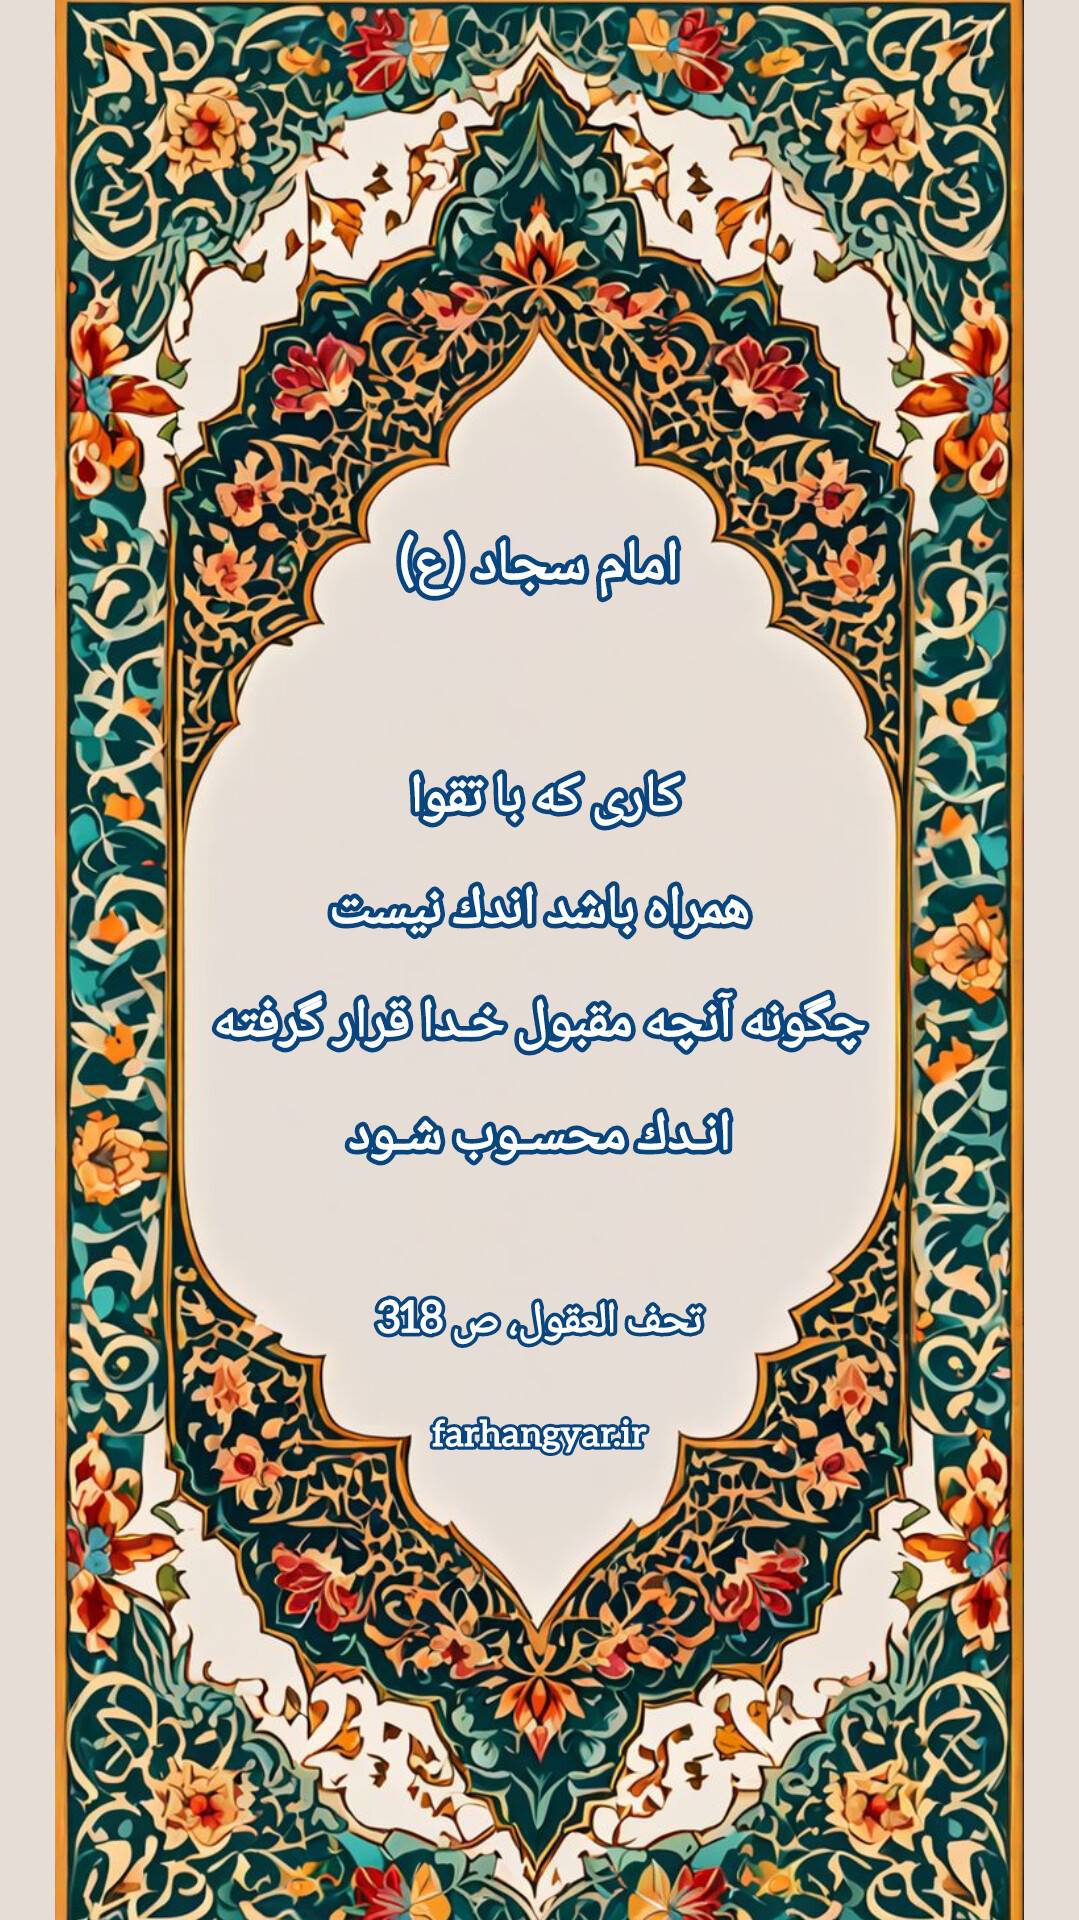 امام سجاد (ع)
کاری که با تقوا
همراه باشد اندك نیست
چگونه آنچه مقبول خـدا قرار گرفته
انـدك محسـوب شـود
تحف العقول، ص 318
farhangyar.ir